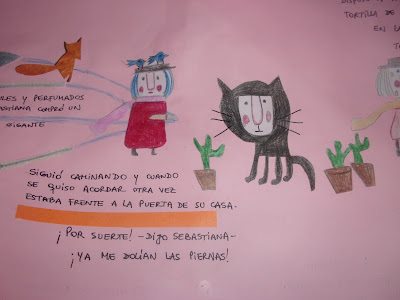 TORTILLA DE
EN LA
ULES Y PERFUMADOS
STIANA COMPRÓ UN
GIGANTE
SIGUIÓ CAMINANDO Y CUANDO
SE QUISO ACORDAR OTRA VEZ
ESTABA FRENTE A LA PUERTA DE SU CASA.
¡POR SUERTE! -DIJO SEBASTIANA-
¡YA ME DOLÍAN LAS PIERNAS!